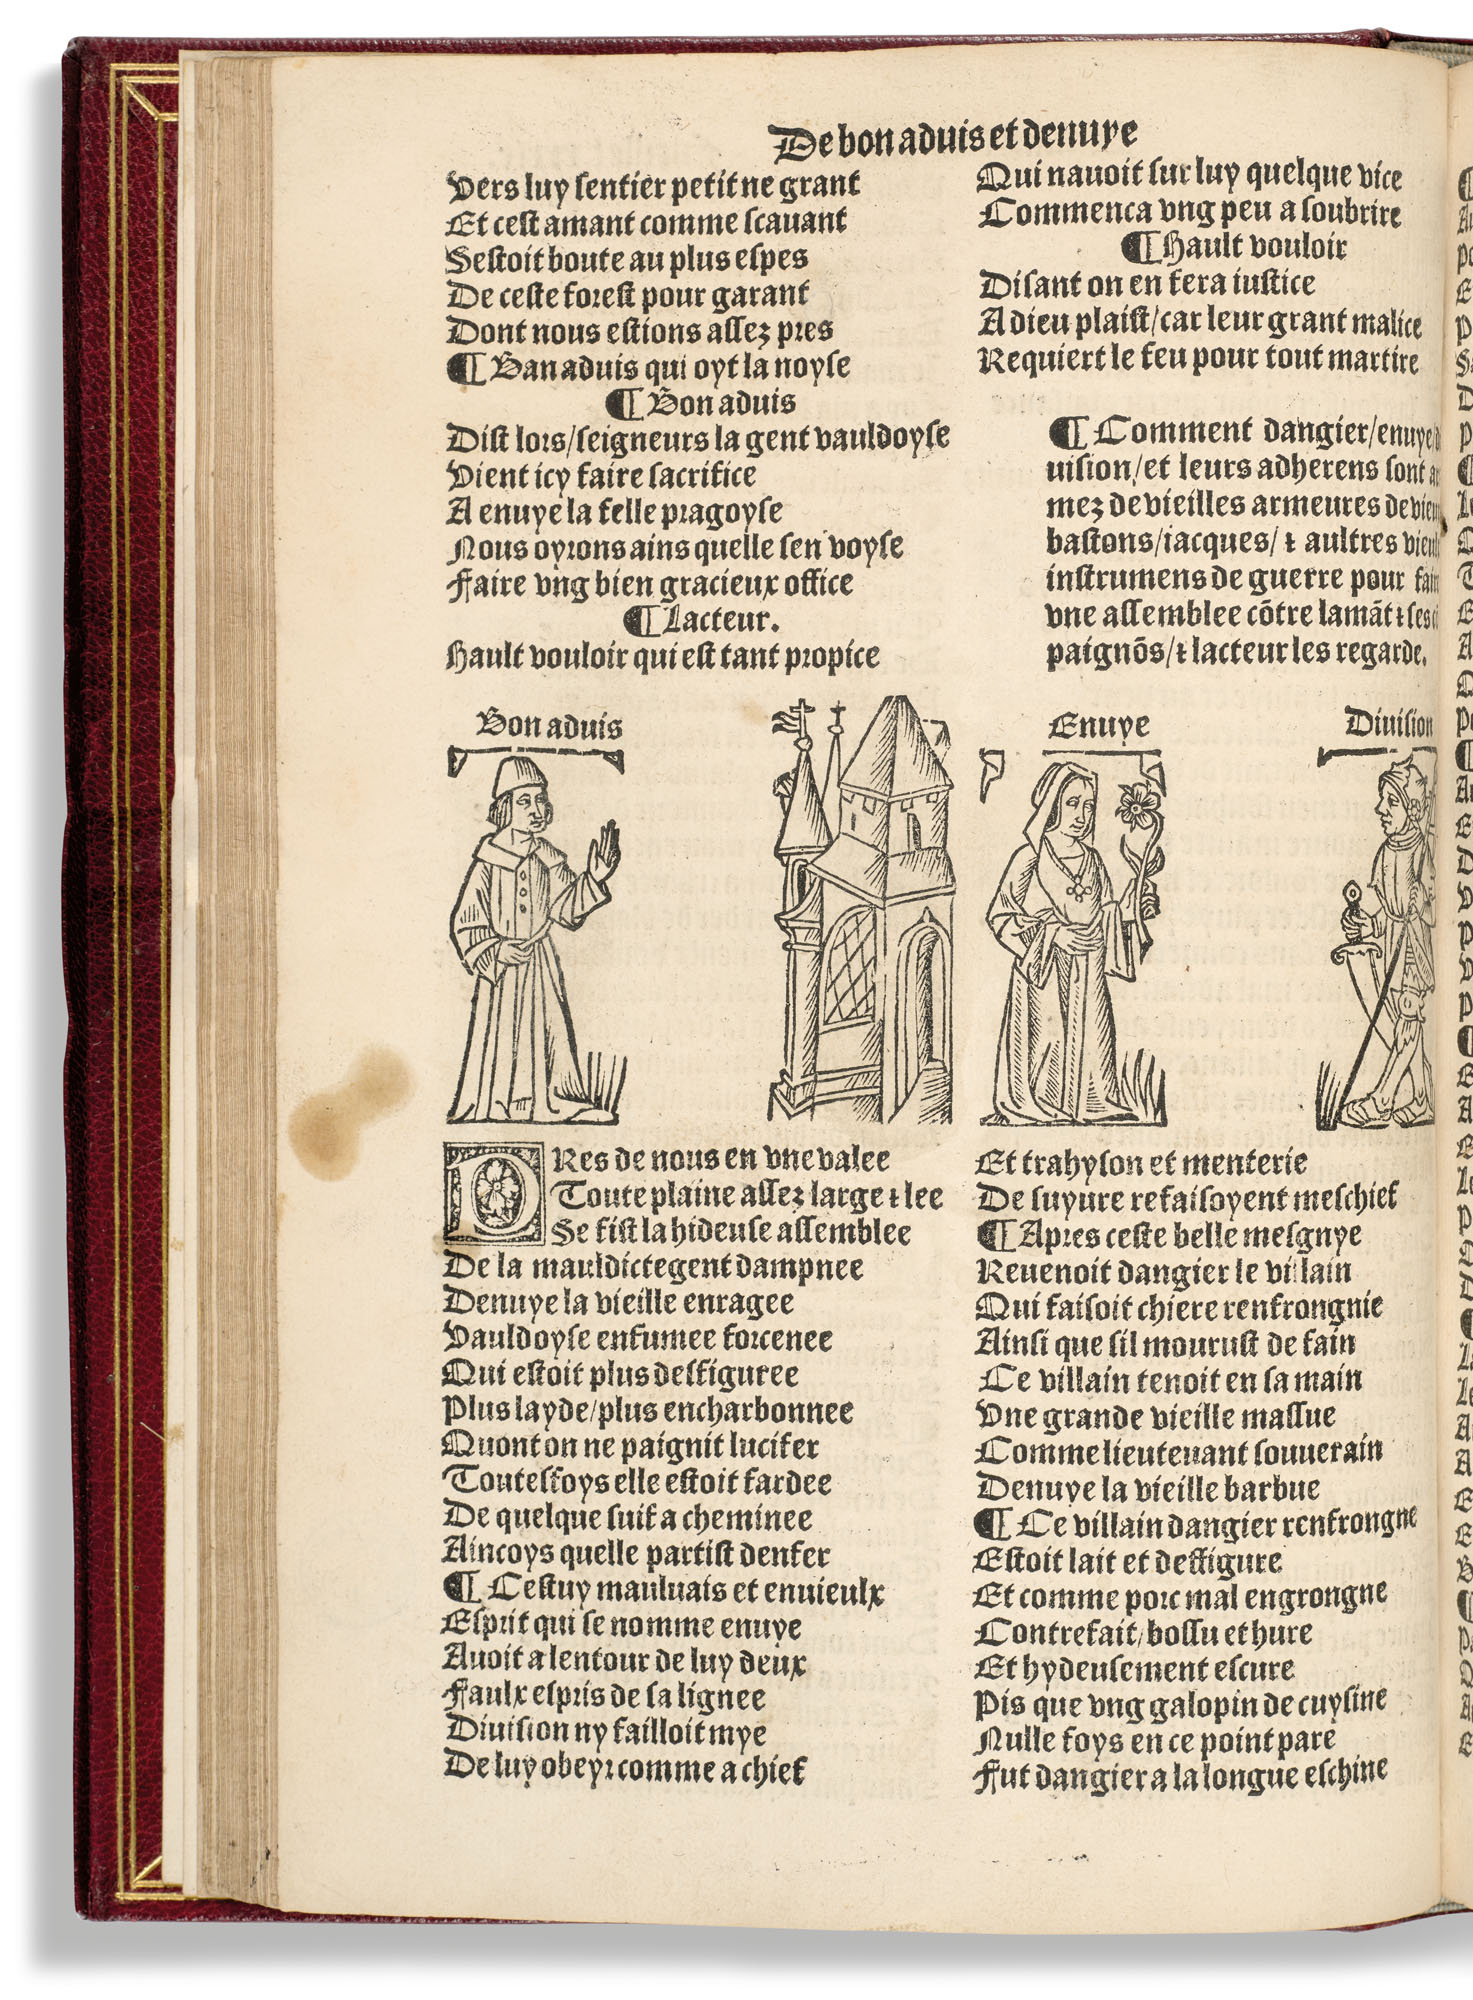 De bon aduis et denuye
Vers luy sentier petit ne grant
Et cest amant comme scauant
Sestoit boute au plus espes
De ceste forest pour garant
Dont nous estions assez pres
¶ Ban aduis qui oyt la noyse
¶ Bon aduis
Dist lors/seigneurs la gent vauldoyse
Vient icy faire sacrifice
A enuye la felle pragoyse
Nous oyrons ains quelle sen voyse
Faire vng bien gracieux office
¶ Lacteur.
Hault vouloir qui est tant propice
Qui nauoit sur luy quelque vice
Commenca vng peu a soubrire
¶ Hault vouloir
Disant on en fera iustice
A dieu plaist/car leur grant malice
Requiert le feu pour tout martire
¶ Comment dangier/enuye
uision/et leurs adherens sont
mez de vieilles armeures de
bastons/iacques/ ⁊ aultres
instrumens de guerre pour
vne assemblee cõtre lamãt ⁊ ses
paignõs/⁊ lacteur les regarde.
Bon aduis
Enuye
Diuision
ORes de nous en vne valee
Toute plaine assez large ⁊ lee
Se fist la hideuse assemblee
De la mauldicte gent dampnee
Denuye la vieille enragee
Vauldoyse enfumee forcenee
Qui estoit plus desfiguree
Plus layde/plus encharbonnee
Quont on ne paignit lucifer
Toutesfoys elle estoit fardee
De quelque suif a cheminee
Aincoys quelle partist denfer
¶ Cestuy mauluais et enuieulx
Esprit qui se nomme enuye
Auoit a lentour de luy deux
Faulx espris de sa lignee
Diuision ny failloit mye
De luy obeyr comme a chief
Et trahyson et menterie
De suyure refaisoyent meschief
¶ Apres ceste belle mesgnye
Reuenoit dangier le villain
Qui faisoit chiere renfrongnie
Ainsi que sil mourust de fain
Ce villain tenoit en sa main
Vne grande vieille massue
Comme lieutenant souuerain
Denuye la vieille barbue
¶ Ce villain dangier renfrongne
Estoit lait et deffigure
Et comme porc mal engrongne
Contrefait/bossu et hure
Et hydeusement escure
Pis que vng galopin de cuysine
Nulle foys en ce point pare
Fut dangier a la longue eschine